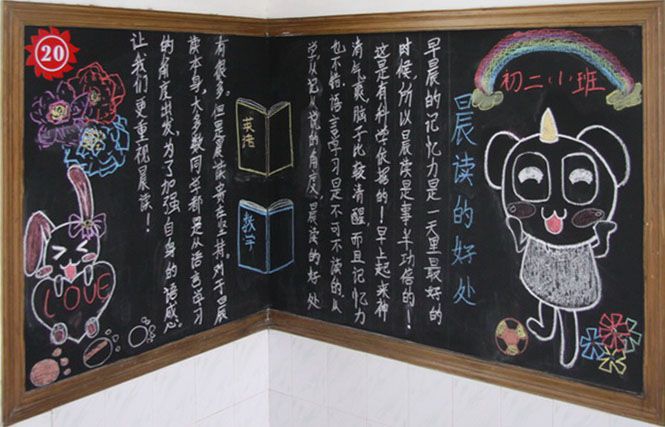 初二小班
晨读的好处
早晨的记忆力是一天里最好的
时候,所以晨读是事半功倍的!
这是有科学依据的!早上起来神
清气爽,脑子比较清醒,而且记忆力
也不错,语言学习是不可不读的,从
的角度,晨读的好处
英语
数学
有很多。但是晨读贵在坚持。对于晨
读本身,大多数同学都是从语言学习
的角度出发,为了加强自身的语感。
让我们更重视晨读!
20
LOVE